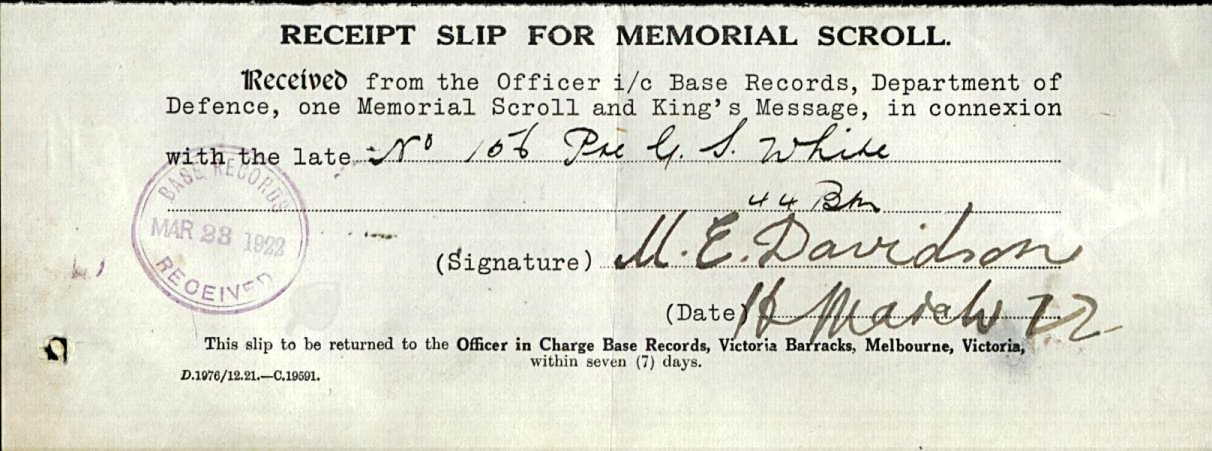 RECEIPT SLIP FOR MEMORIAL SCROLL.
Received from the Officer i/c Base Records, Department of
Defence, one Memorial Scroll and King's Message, in connexion
with the late No 156 Pte G. S. White
44 Btn
BASE RECORDS
MAR 23 1922
RECEIVED
(Signature) M. E. Davidson
(Date) March 22
This slip to be returned to the Officer in Charge Base Records, Victoria Barracks, Melbourne, Victoria,
within seven (7) days.
D.1976/12.21.—C.19591.